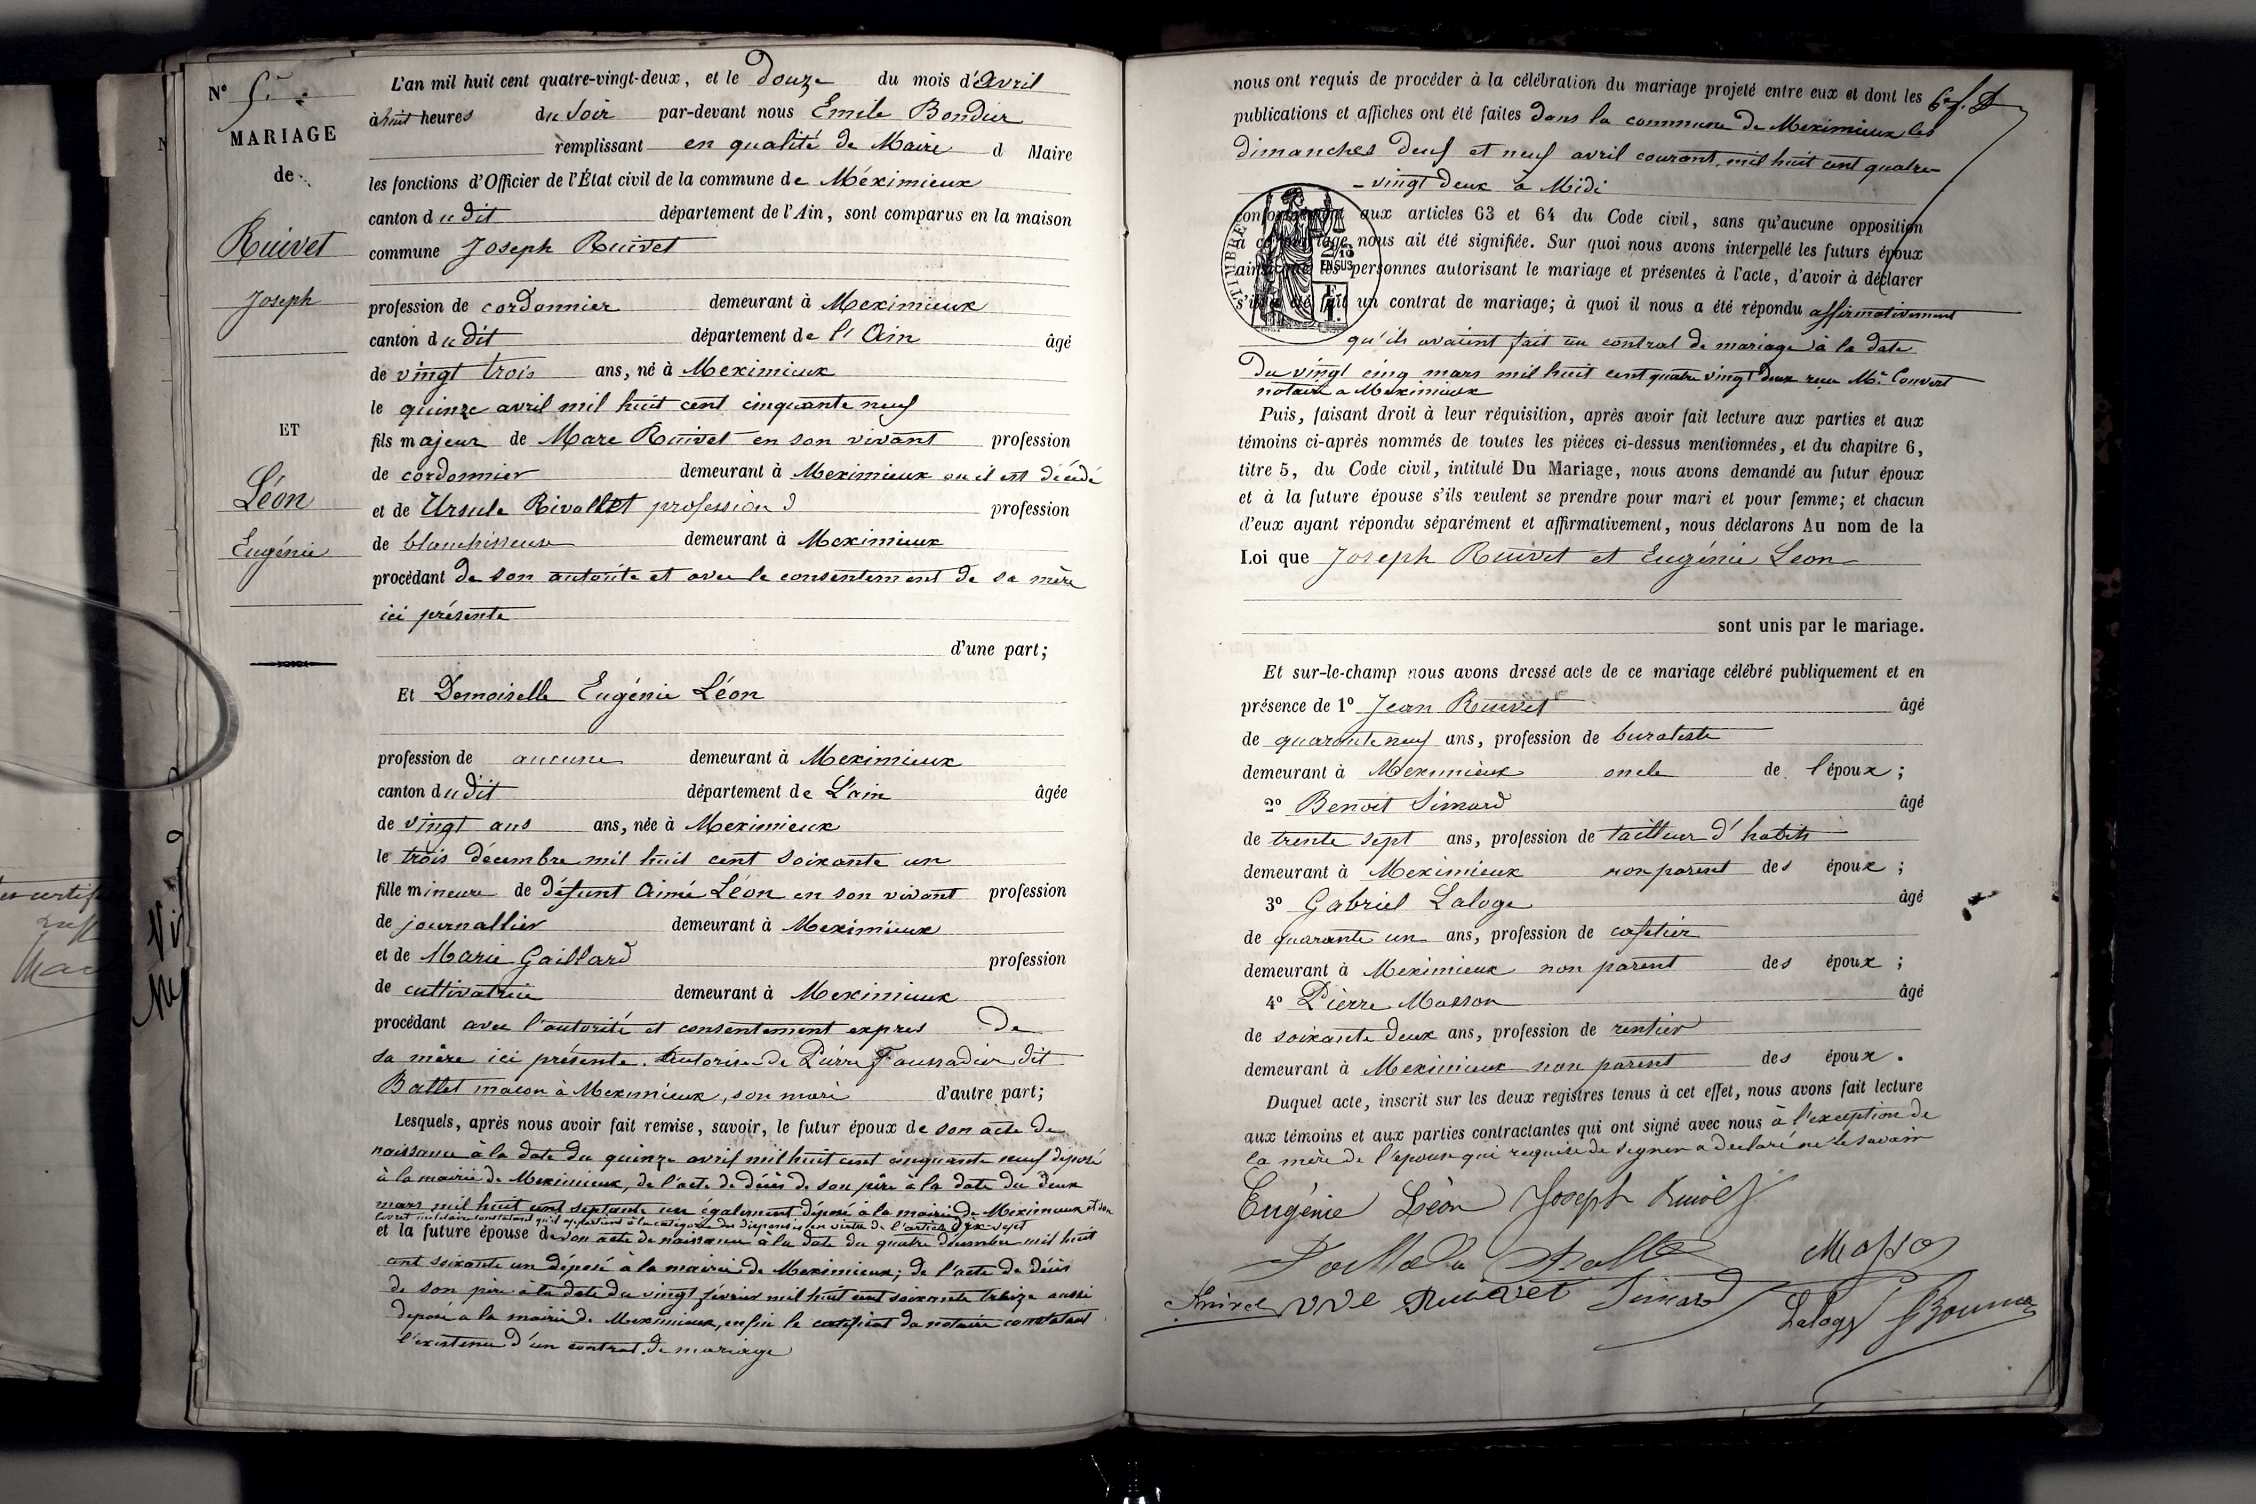 N° 5.
MARIAGE
de
Ruivet
Joseph
ET
Léon
Eugénie
L'an mil huit cent quatre-vingt-deux, et le douze du mois d'avril
à huit heures du Soir par-devant nous Emile Bondur
remplissant en qualité de Maire d Maire
les fonctions d'Officier de l'État civil de la commune de Méximieux
canton dudit département de l'Ain, sont comparus en la maison
commune Joseph Ruivet
profession de cordonnier demeurant à Meximieux
canton dudit département de l'Ain âgé
de vingt trois ans, né à Meximieux
le quinze avril mil huit cent cinquante neuf
fils majeur de Marc Ruivet en son vivant profession
de cordonnier demeurant à Meximieux ou il est décédé
et de Ursule Rivollet profession d profession
de blanchisseuse demeurant à Meximieux
procédant de son autorité et avec le consentement de sa mère
ici présente
d'une part;
Et Demoiselle Eugénie Léon
profession de aucune demeurant à Meximieux
canton dudit département de L'ain âgée
de vingt ans ans, née à Meximieux
le trois décembre mil huit cent soixante un
fille mineure de défunt Aimé Léon en son vivant profession
de journallier demeurant à Meximieux
et de Marie Gaillard profession
de cultivatrice demeurant à Meximieux
procédant avec l'autorité et consentement expres de
sa mère ici présente. autorisée de Pierre Foussadier dit
Ballet macon à Meximieux, son mari d'autre part;
Lesquels, après nous avoir fait remise, savoir, le futur époux de son acte de
naissance à la date du quinze avril mil huit cent cinquante neuf déposé
à la mairie de Meximieux, de l'acte de décès de son père à la date du deux
mars mil huit cent septante un également déposé à la mairie de Meximieux et son
livret militaire constatant qu'il appartient à la catégorie des dispensés en vertu de l'article dix sept
et la future épouse de son acte de naissance à la date du quatre décembre mil huit
cent soixante un déposé à la mairie de Meximieux; de l'acte de décès
de son père à la date du vingt février mil huit cent soixante treize aussi
déposé a la mairie de Meximieux, enfin le certificat du notaire constatant
l'existence d'un contrat de mariage
nous ont requis de procéder à la célébration du mariage projeté entre eux et dont les
publications et affiches ont été faites dans la commune de Meximieux les
dimanches deux et neuf avril courant, mil huit cent quatre
- vingt deux à Midi
conformément aux articles 63 et 64 du Code civil, sans qu'aucune opposition
à ce mariage nous ait été signifiée. Sur quoi nous avons interpellé les futurs époux
ainsi que les personnes autorisant le mariage et présentes à l'acte, d'avoir à déclarer
s'il a été fait un contrat de mariage; à quoi il nous a été répondu affirmativement
qu'ils avaient fait un contrat de mariage à la date
du vingt cinq mars mil huit cent quatre vingt deux reçu Mr. Convert
notaire a Meximieux
TIMBRE
2/10
EN SUS
Puis, faisant droit à leur réquisition, après avoir fait lecture aux parties et aux
témoins ci-après nommés de toutes les pièces ci-dessus mentionnées, et du chapitre 6,
titre 5, du Code civil, intitulé Du Mariage, nous avons demandé au futur époux
et à la future épouse s'ils veulent se prendre pour mari et pour femme; et chacun
d'eux ayant répondu séparément et affirmativement, nous déclarons Au nom de la
Loi que Joseph Ruivet et Eugénie Leon
sont unis par le mariage.
Et sur-le-champ nous avons dressé acte de ce mariage célébré publiquement et en
présence de 1° Jean Ruivet âgé
de quarante neuf ans, profession de buraliste
demeurant à Meximieux oncle de l'époux;
2° Benoit Simard âgé
de trente sept ans, profession de tailleur d'habits
demeurant à Meximieux non parent des époux;
3° Gabriel Laloge âgé
de quarante un ans, profession de cafetier
demeurant à Meximieux non parent des époux;
4° Pierre Masson âgé
de soixante deux ans, profession de rentier
demeurant à Meximieux non parent des époux.
Duquel acte, inscrit sur les deux registres tenus à cet effet, nous avons fait lecture
aux témoins et aux parties contractantes qui ont signé avec nous à l'exception de
la mère de l'épouse qui requise de signer a déclaré ne le savoir
Eugénie Léon Joseph Ruivet
Masson
Ruivet vve Ruivet Simard
Laloge